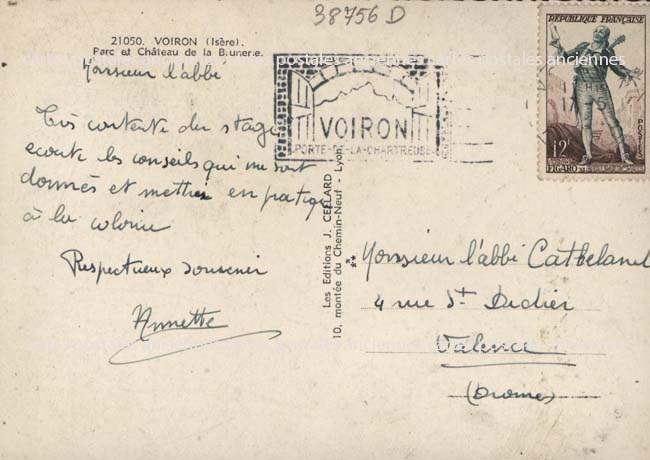 38756 D
21050. VOIRON (Isère).
Parc et Château de la Brunerie.
Monsieur l'abbé
Très contente du stage
ecoute les conseils qui me sont
donnés et mettrai en pratique
à la colonie
Respectueux souvenir
Annette
VOIRON
PORTE-DE-LA-CHARTREUSE
REPUBLIQUE FRANÇAISE
POSTES
12F
FIGARO
Les Editions J. CELLARD
10, montée du Chemin-Neuf - Lyon
Monsieur l'abbé Catheland
4 rue St Didier
Valence
(Drome)
postales anciennes